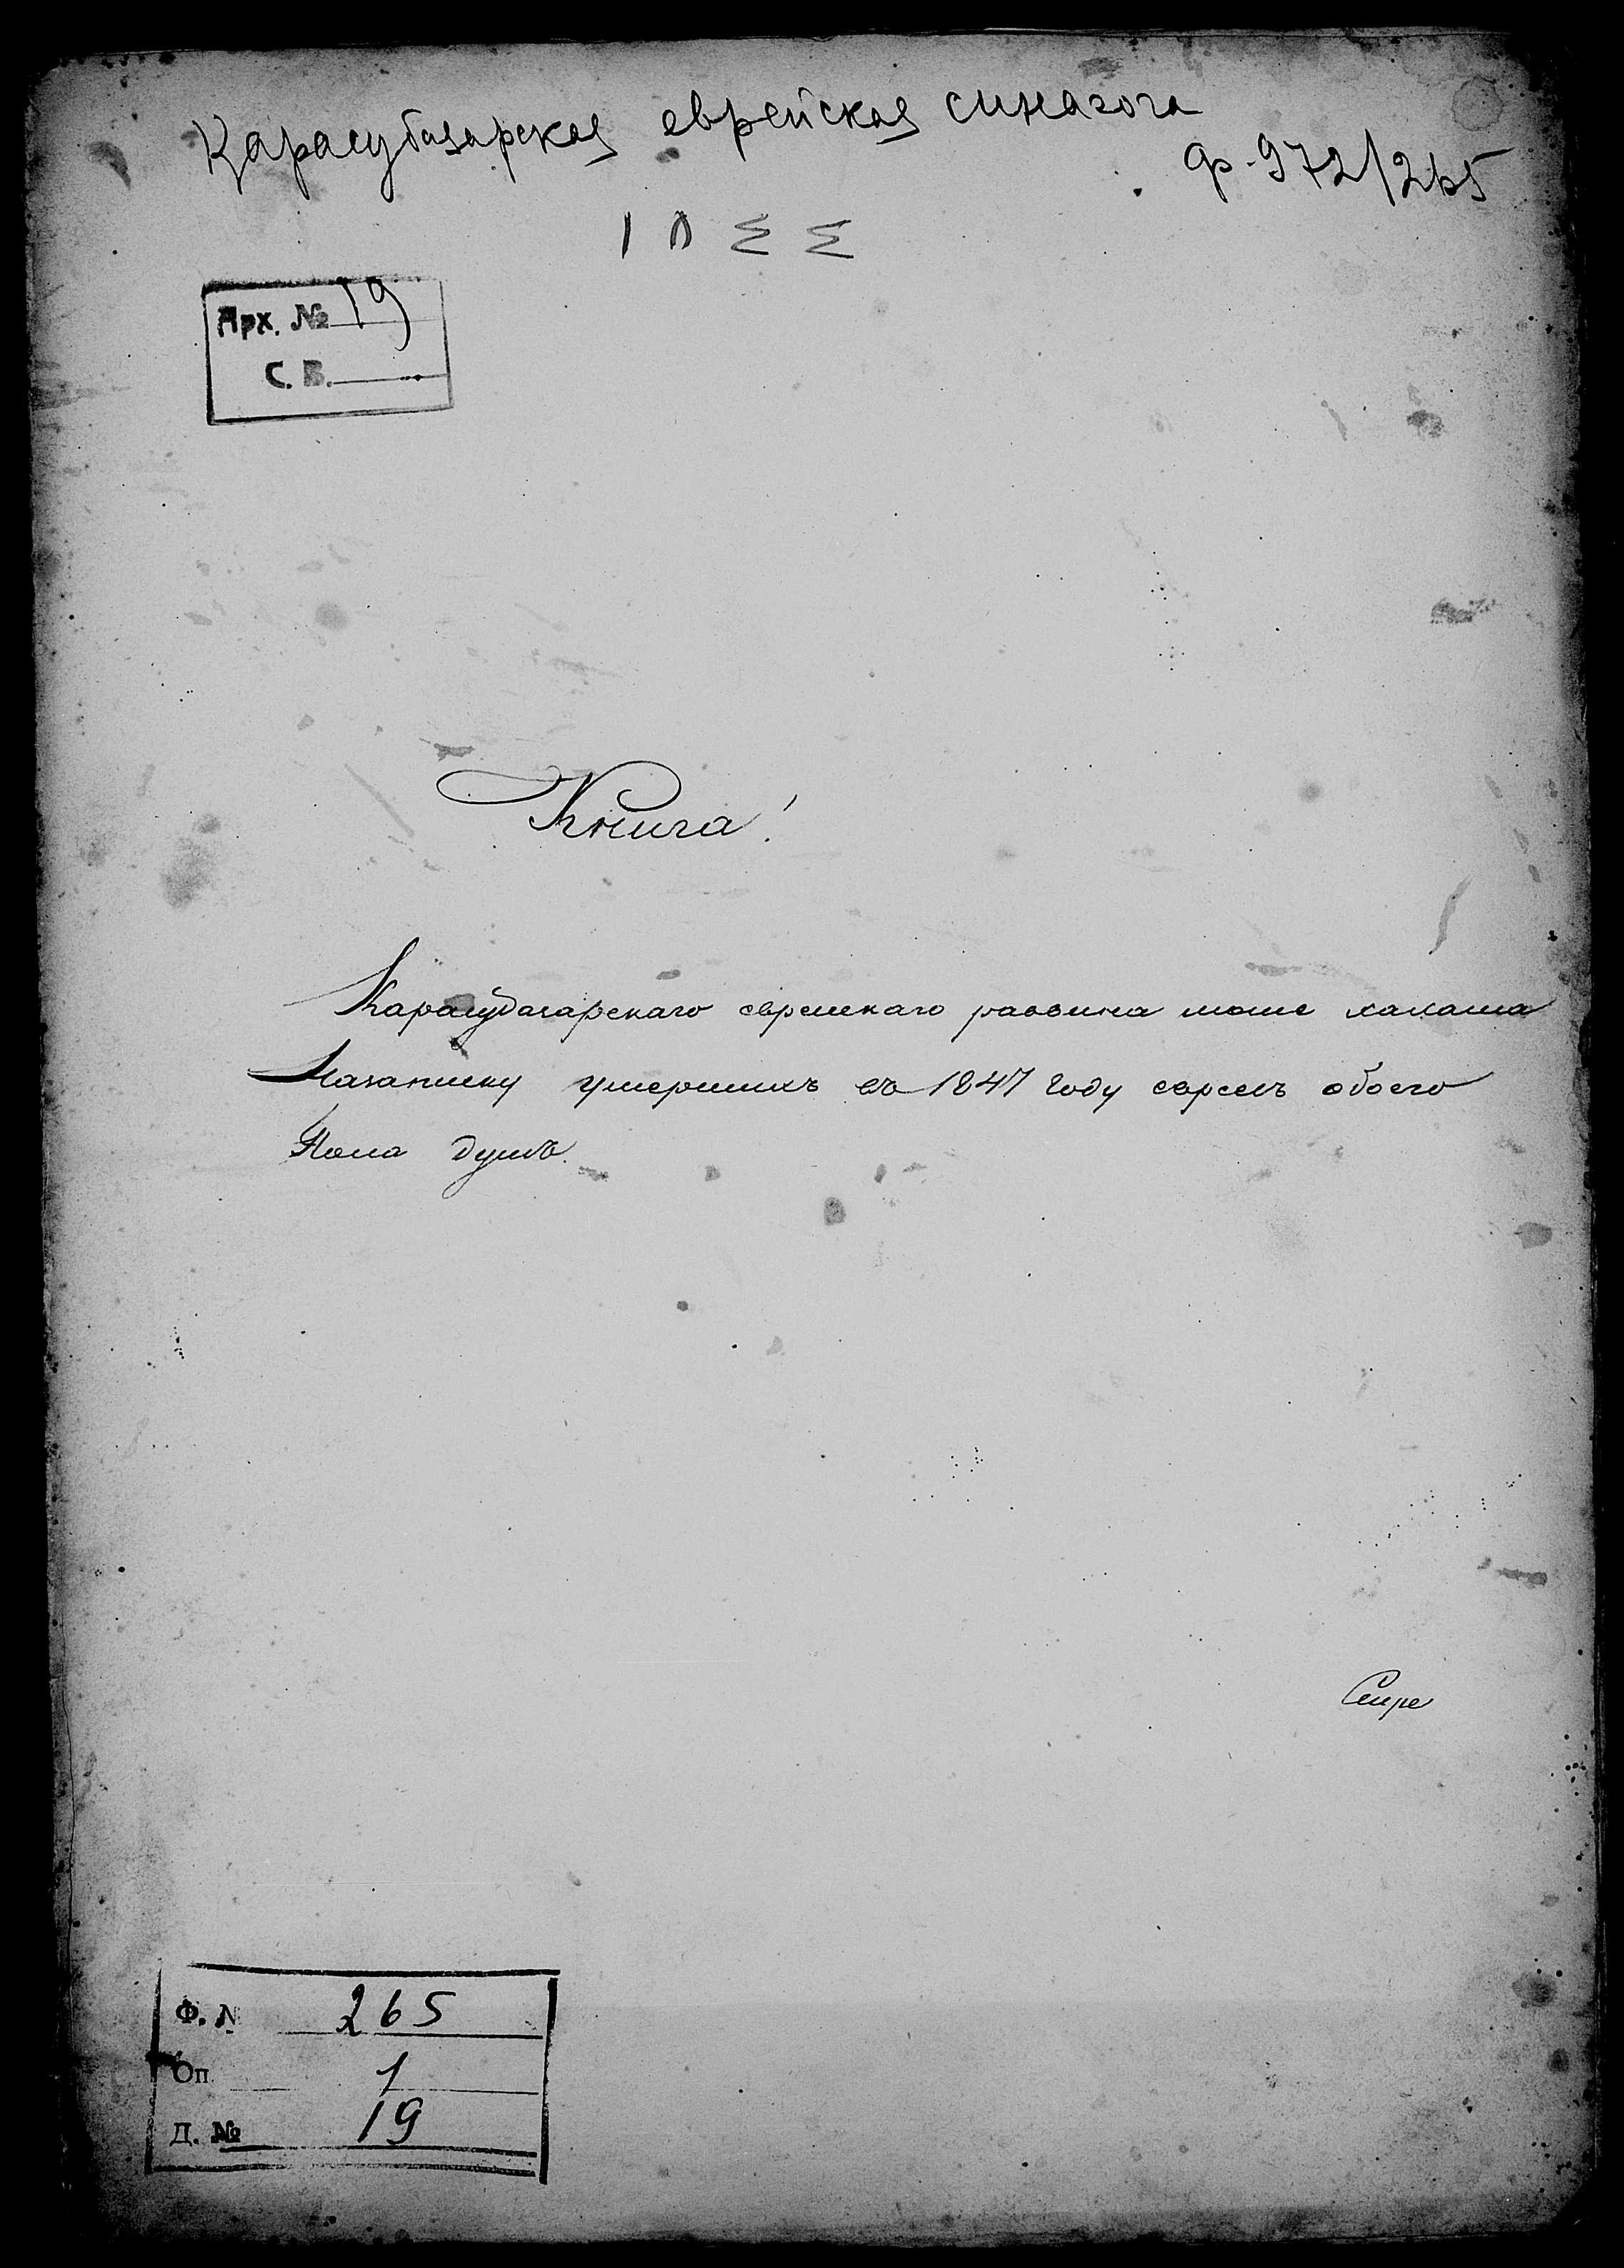 Карасубазарская еврейская синагога
ф-972/265
Арх. № 19
С. В.
Книга!
Карасубазарскаго еврейскаго раввина моше
Назаписку умершихъ въ 1847 году евреевъ обоего
Пола душъ.
Ф. № 265
Оп. 1
Д. № 19